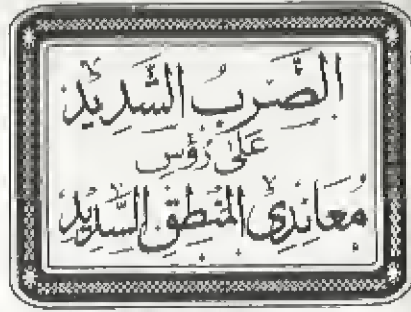 الضَّرْبُ الشَّدِيْدُ
عَلَىٰ رُؤُسِ
مُعَانِدِي المَنْطِقِ السَّدِيْدِ